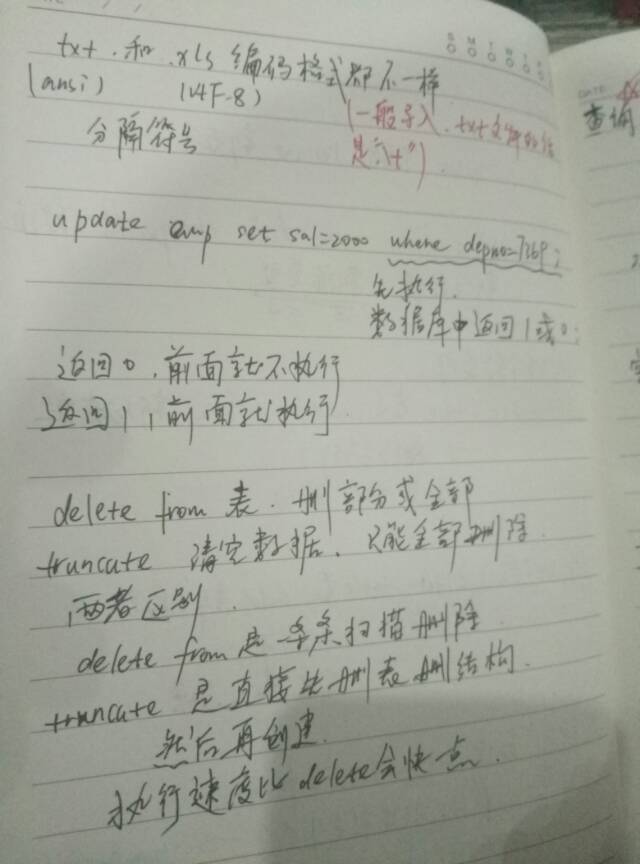 txt .和 .xls 编码格式都不一样
(ansi) (utf-8) (一般导入 .txt文件的话
分隔符号 是"\t")
update emp set sal=2000 where depno=7369;
先执行.
数据库中返回1或0;
返回0,前面就不执行
返回1,前面就执行.
delete from 表. 删部分或全部
truncate 清空数据. 只能全部删除.
两者区别.
delete from是 条条扫描删除
truncate 是直接先删表删结构.
然后再创建.
执行速度比 delete会快点.
DATE
查询